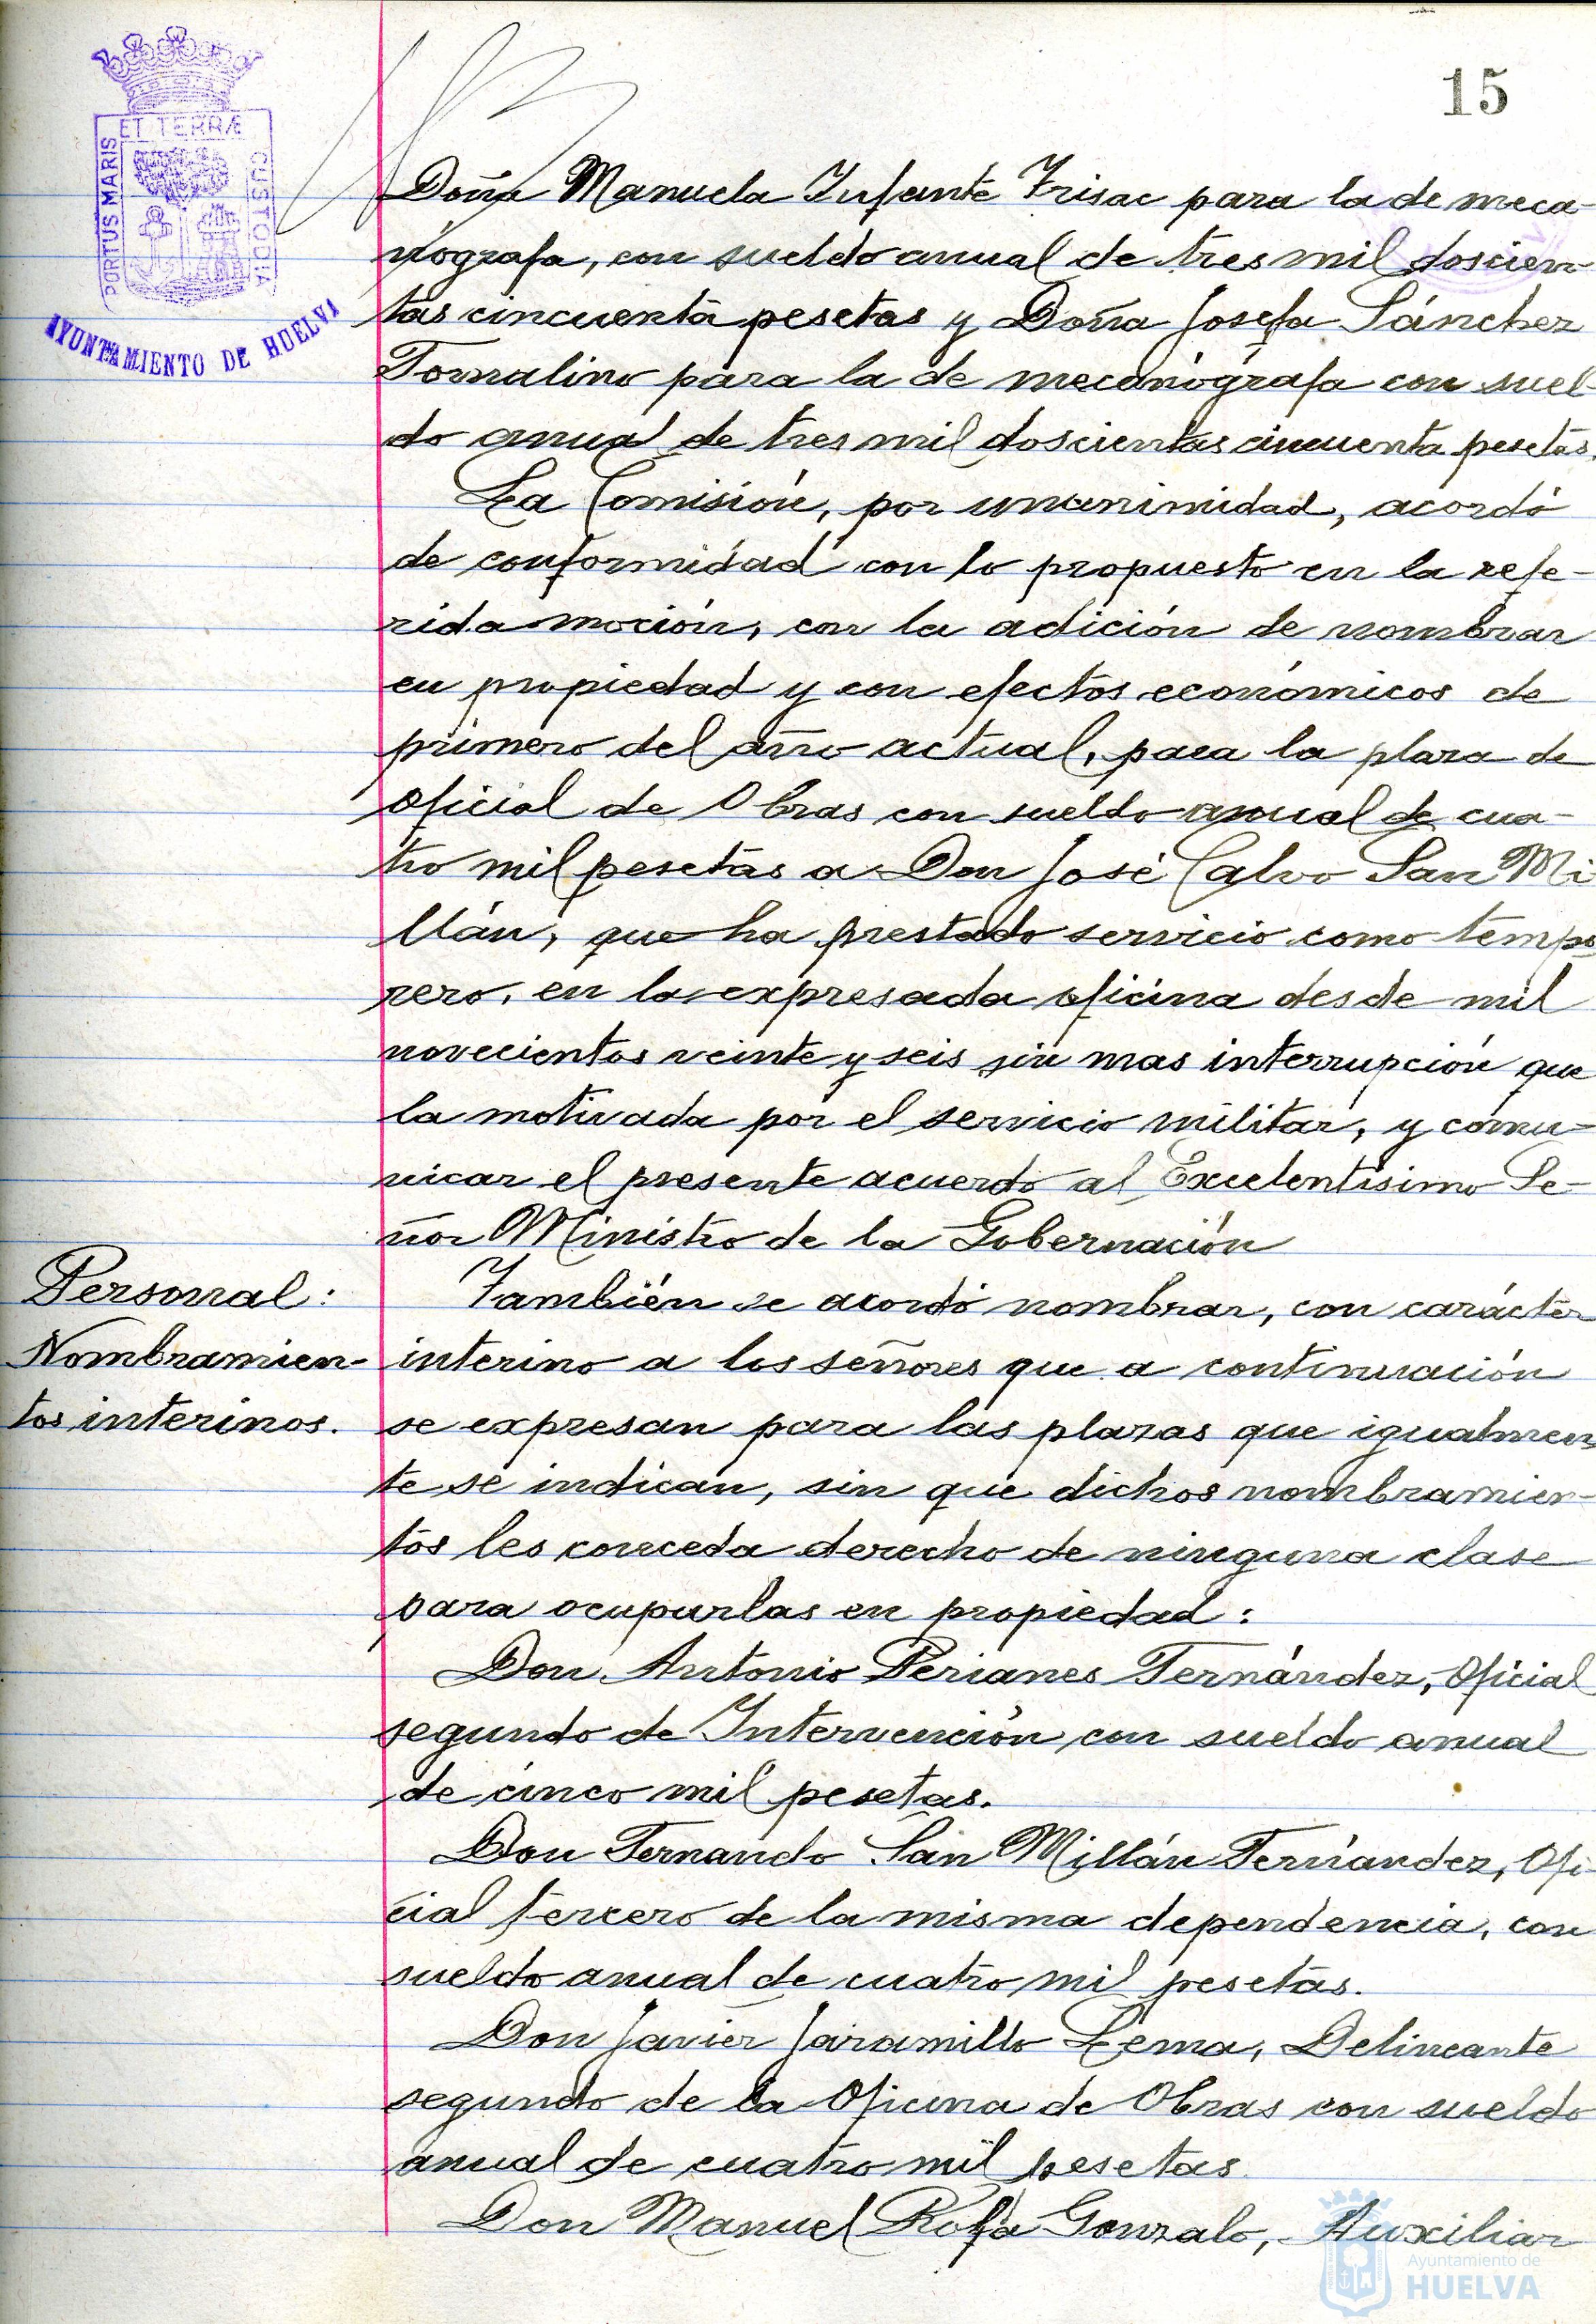 15
ET TERRÆ
PORTUS MARIS
CUSTODIA
AYUNTAMIENTO DE HUELVA
Doña Manuela Infante para la de meca-
nógrafa, con sueldo anual de tres mil doscien-
tas cincuenta pesetas y Doña Josefa Sánchez
Tornalino para la de mecanógrafa con suel-
do anual de tres mil doscientas cincuenta pesetas.
La Comisión, por unanimidad, acordó
de conformidad con lo propuesto en la refe-
rida moción, con la adición de nombrar
en propiedad y con efectos económicos de
primero del año actual, para la plaza de
Oficial de Obras con sueldo anual de cua-
tro mil pesetas a Don José Calvo San Mi
llán, que ha prestado servicio como tempo
rero, en la expresada oficina desde mil
novecientos veinte y seis sin mas interrupción que
la motivada por el servicio militar, y comu-
nicar el presente acuerdo al Excelentísimo Se-
ñor Ministro de la Gobernación
Personal:
Nombramien-
tos interinos.
También se acordó nombrar, con carácter
interino a los señores que a continuación
se expresan para las plazas que igualmen
te se indican, sin que dichos nombramien-
tos les conceda derecho de ninguna clase
para ocuparlas en propiedad:
Don Antonio Perianes Fernández, Oficial
segundo de Intervención con sueldo anual
de cinco mil pesetas.
Don Fernando San Millán Fernández, Ofi-
cial tercero de la misma dependencia, con
sueldo anual de cuatro mil pesetas.
Don Javier Jaramillo Lema, Delineante
segundo de la Oficina de Obras con sueldo
anual de cuatro mil pesetas
Don Manuel Rofa Gonzalo, Auxiliar
Ayuntamiento de
HUELVA